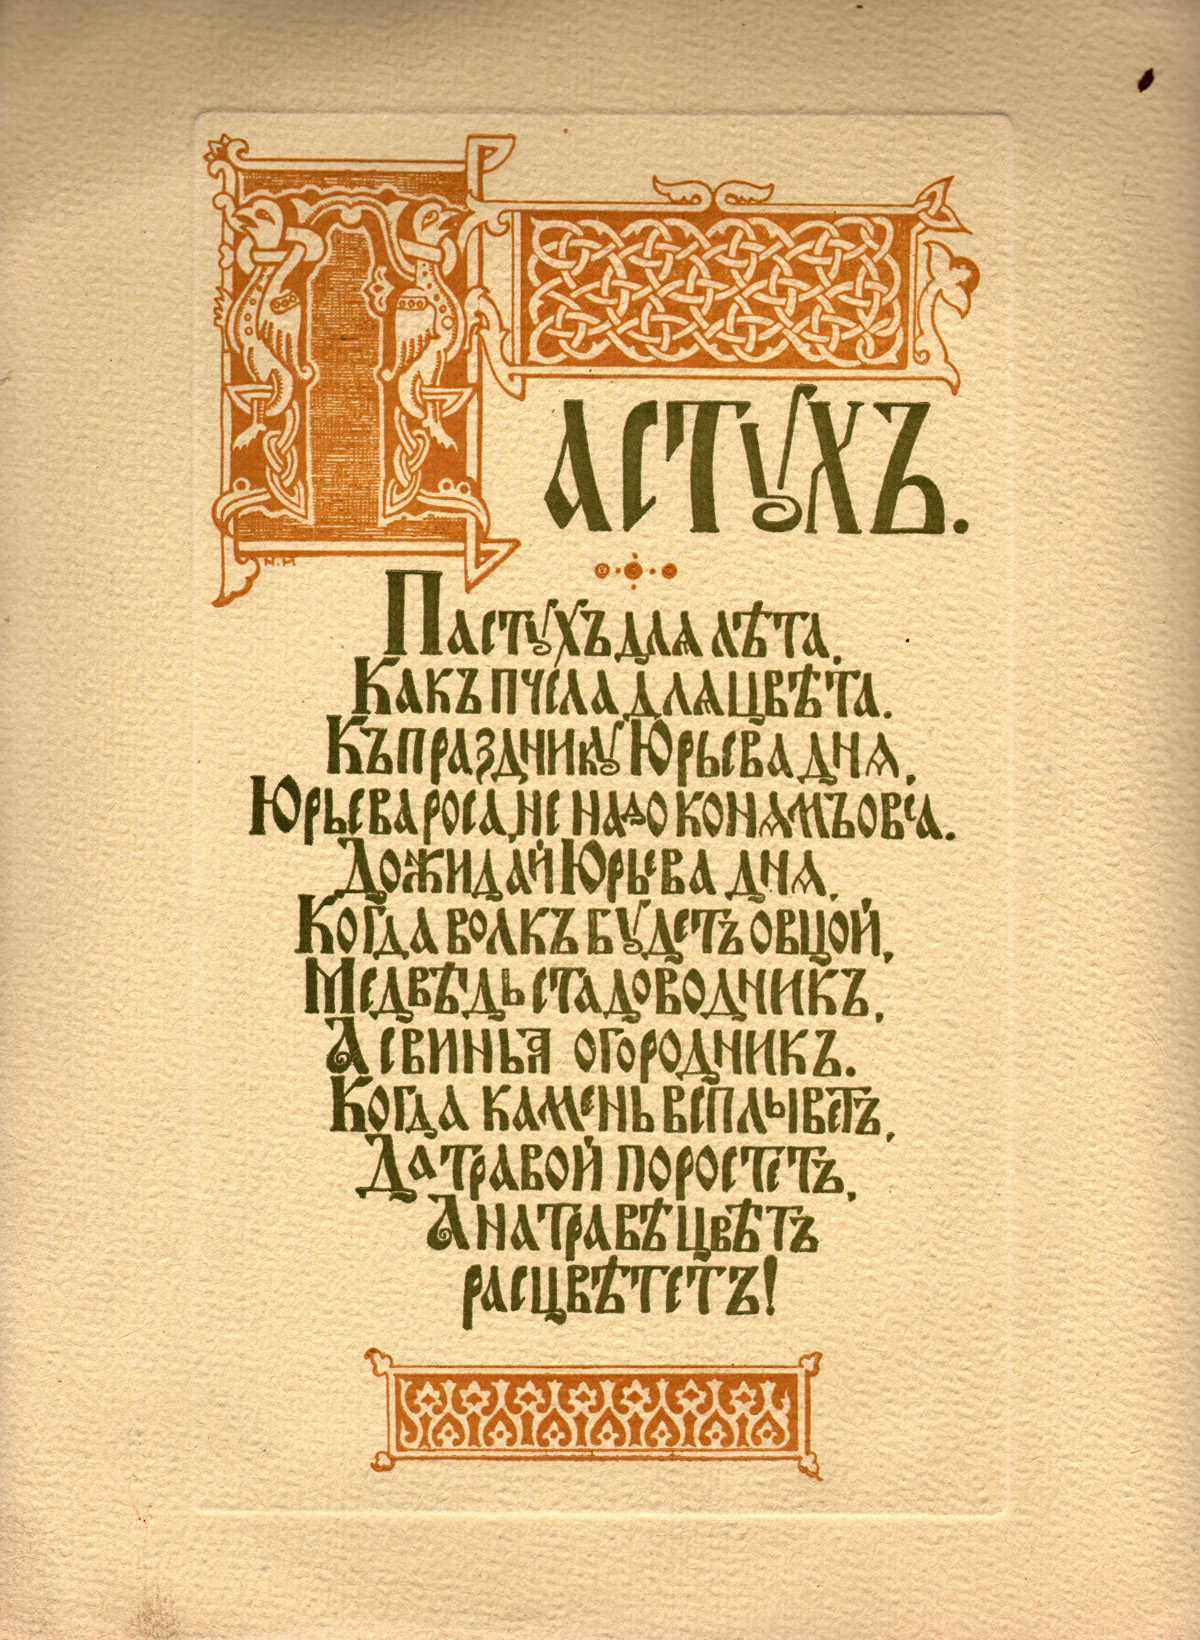 Пастухъ.
Н.М
Пастухъ для лѣта,
Какъ пчела для цвѣта.
Къ празднику Юрьева дня,
Юрьева роса, не надо конямъ овса.
Дожидай Юрьева дня,
Когда волкъ будетъ овцой,
Медвѣдь стадоводникъ,
А свинья огородникъ.
Когда камень всплыветъ,
Да травой поростетъ,
А на травѣ цвѣтъ
расцвѣтетъ!